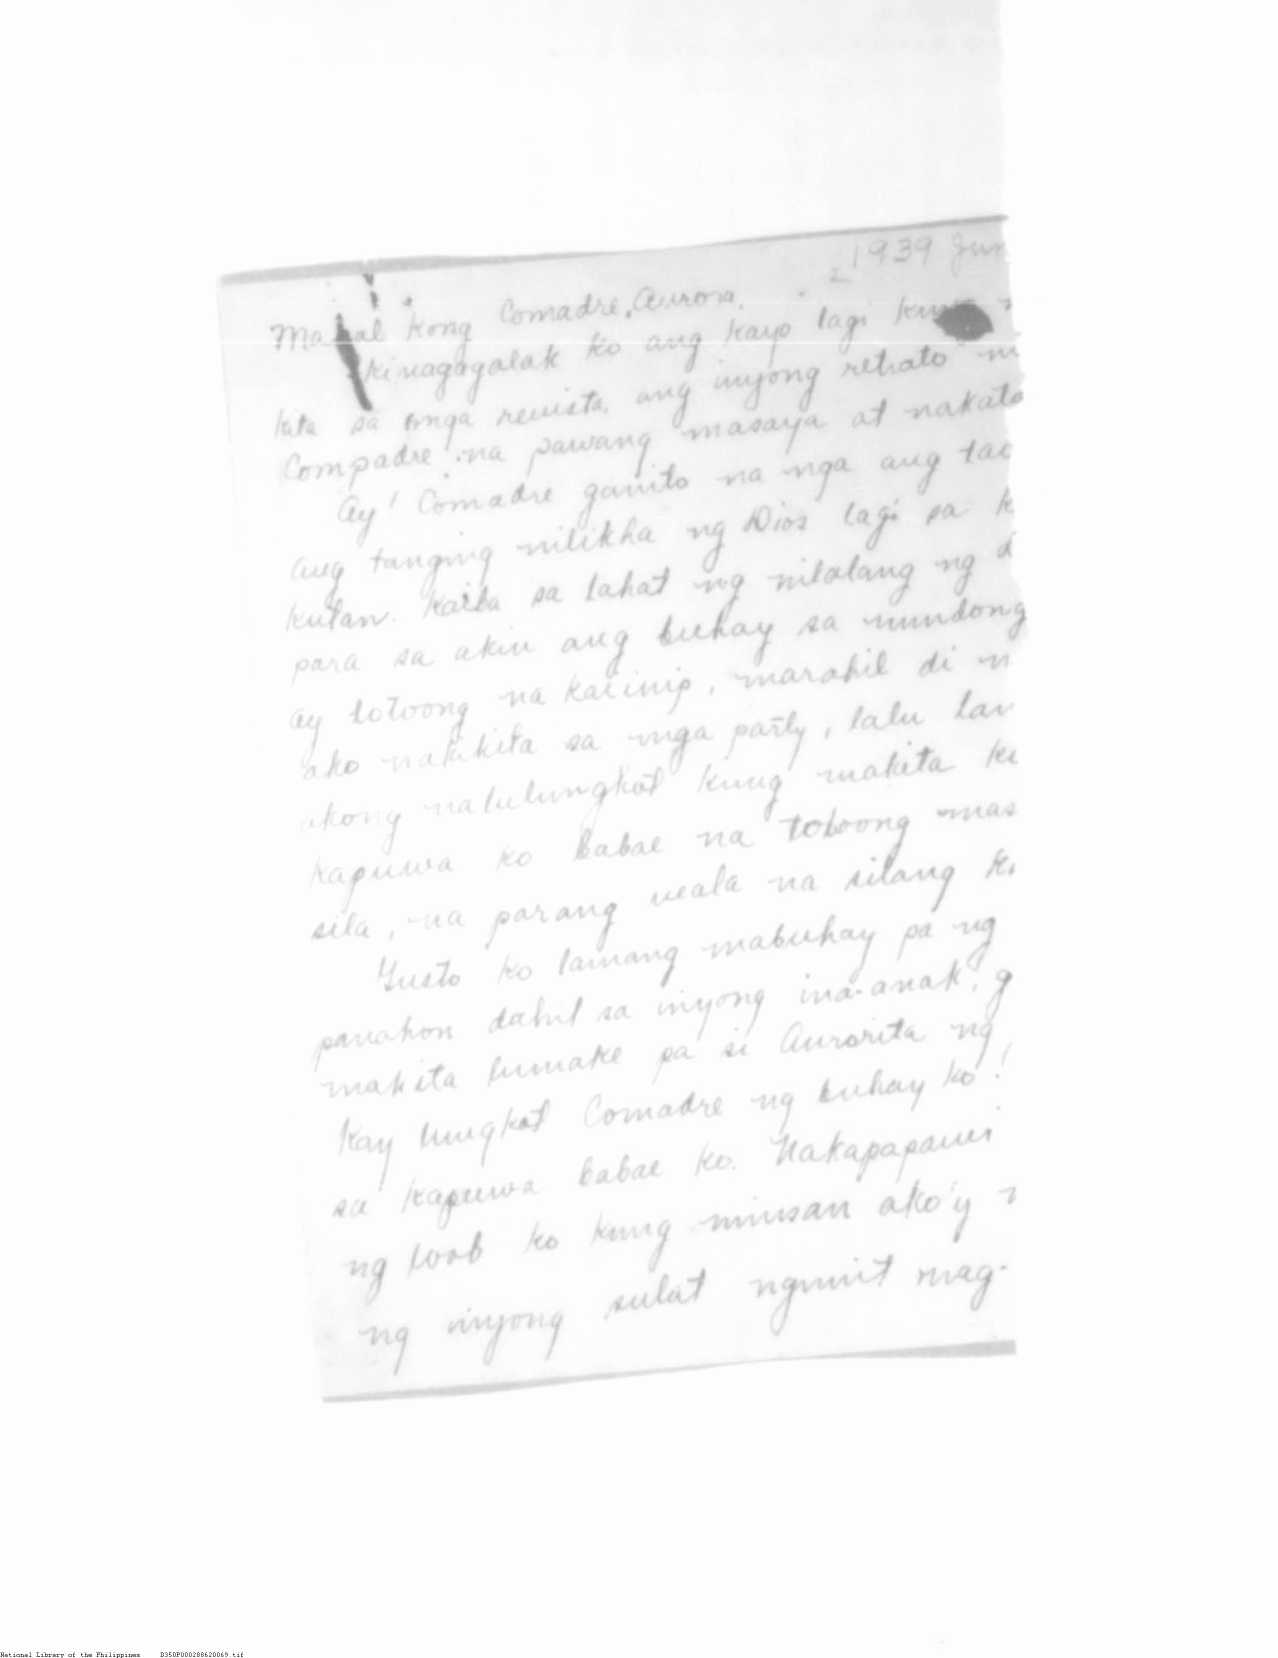 1939 Jun
2
Mahal kong Comadre, Aurora.
Kinagagalak ko ang kayo lagi
kita sa mga revista, ang inyong retrato ni
Compadre na pawang masaya at nakata
Ay! Comadre ganito na nga ang tao
ang tanging nilikha ng Dios lagi sa k
kulan. Kaiba sa lahat ng nilalang ng d
para sa akin ang buhay sa mundong
ay totoong na kaiinip, marahil di n
ako nakikita sa mga party, lalu lan
akong nalulungkot kung makita ki
kapuwa ko babae na totoong mas
sila, na parang wala na silang k
Gusto ko lamang mabuhay pa ng
panahon dahil sa inyong ina-anak, g
makita lumake pa si Aurorita ng
Kay lungkot Comadre ng buhay ko!
sa kapuwa babae ko. Nakapapawi
ng loob ko kung minsan ako'y n
ng inyong sulat ngunit mag-
National Library of the Philippines B350P000288620069.tif